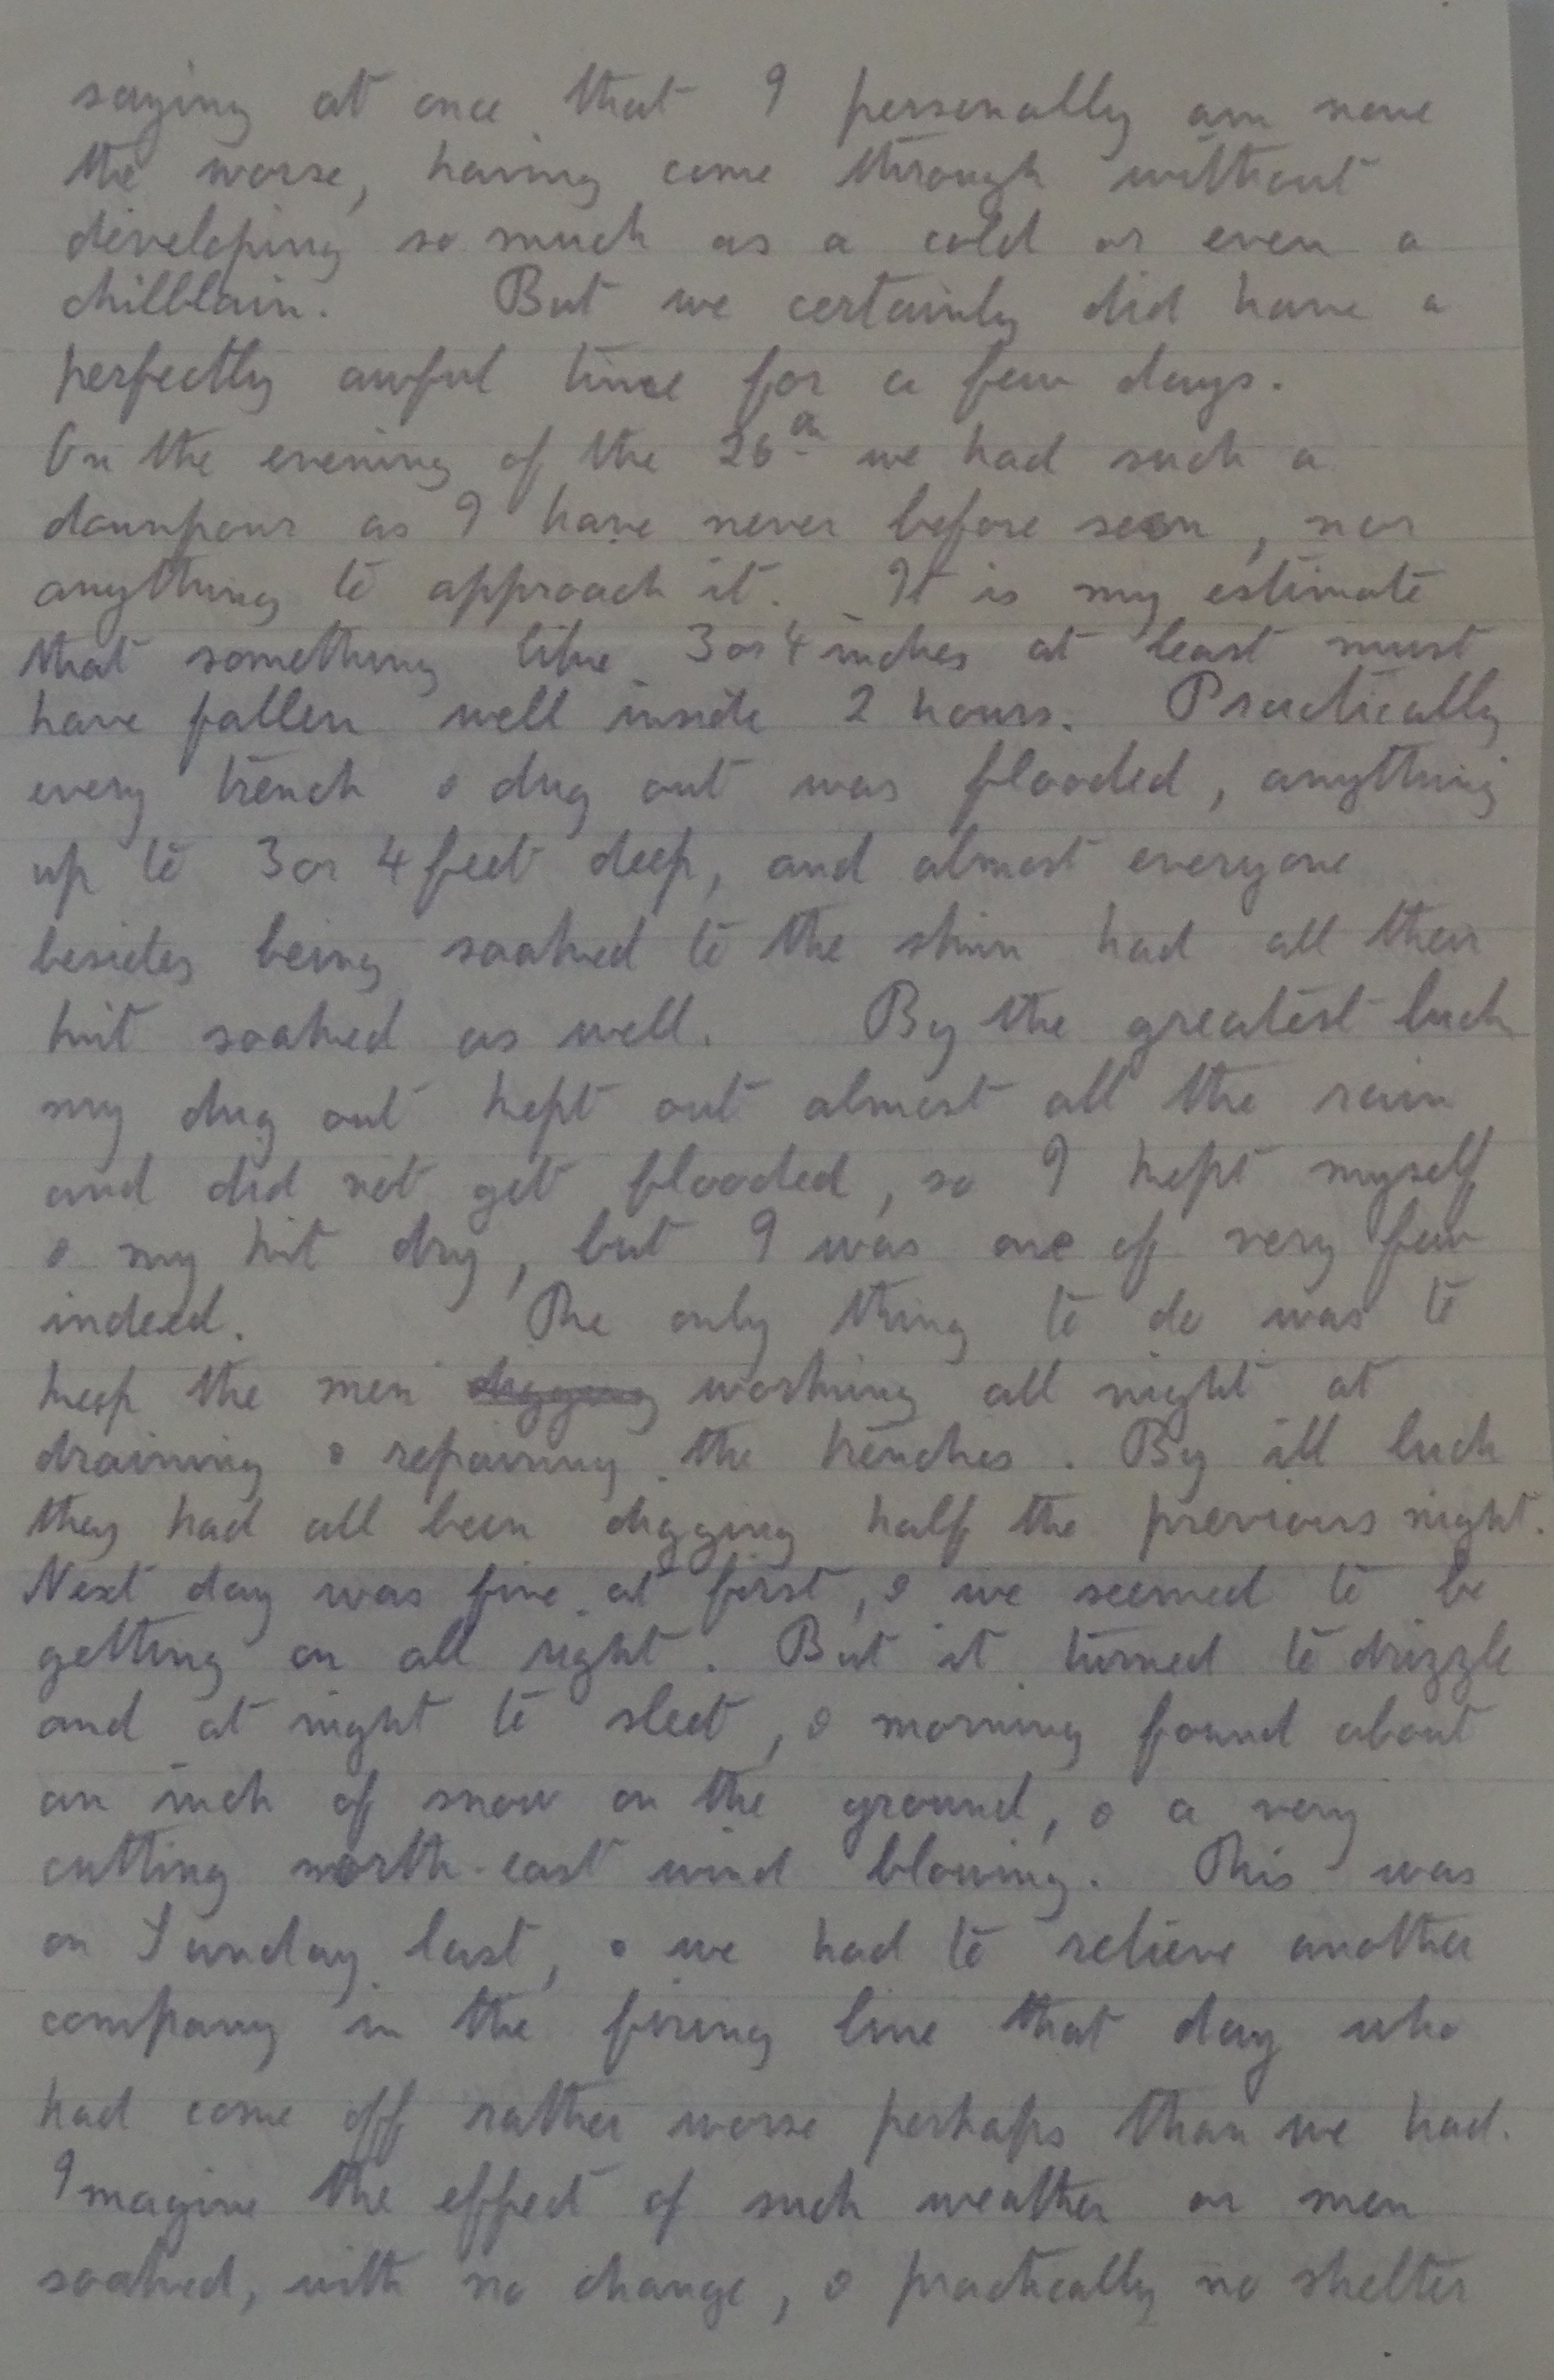 saying at once that I personally am none
the worse, having come through without
developing so much as a cold or even a
chilblain. But we certainly did have a
perfectly awful time for a few days.
On the evening of the 26th we had such a
downpour as I have never before seen, nor
anything to approach it. It is my estimate
that something like 3 or 4 inches at least must
have fallen well inside 2 hours. Practically
every trench & dug out was flooded, anything
up to 3 or 4 feet deep, and almost everyone
besides being soaked to the skin had all their
kit soaked as well. By the greatest luck
my dug out kept out almost all the rain
and did not get flooded, so I kept myself
& my kit dry, but I was one of very few
indeed. The only thing to do was to
keep the men digging working all night at
draining & repairing the trenches. By ill luck
they had all been digging half the previous night.
Next day was fine at first, & we seemed to be
getting on all right. But it turned to drizzle
and at night to sleet, & morning found about
an inch of snow on the ground, & a very
cutting north-east wind blowing. This was
on Sunday last, & we had to relieve another
company in the firing line that day who
had come off rather worse perhaps than we had.
Imagine the effect of such weather on men
soaked, with no change, & practically no shelter